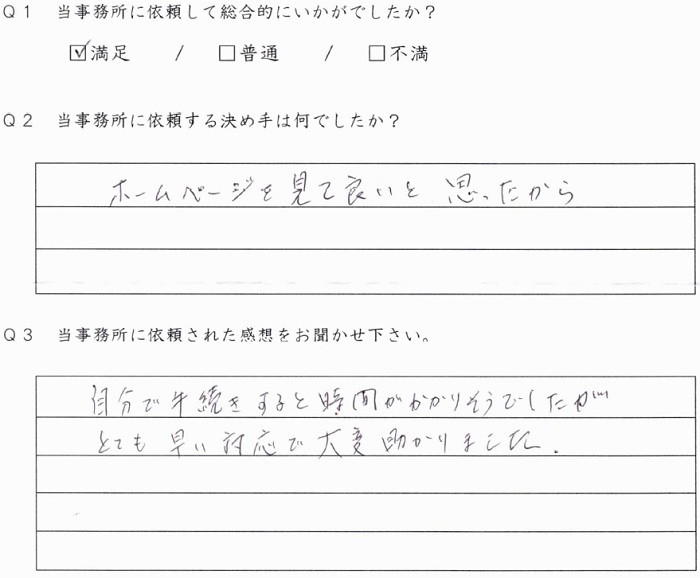 Q1 当事務所に依頼して総合的にいかがでしたか？
☑満足 / □普通 / □不満
Q2 当事務所に依頼する決め手は何でしたか？
ホームページを見て良いと思ったから
Q3 当事務所に依頼された感想をお聞かせ下さい。
自分で手続きすると時間がかかりそうでしたが
とても早い対応で大変助かりました.